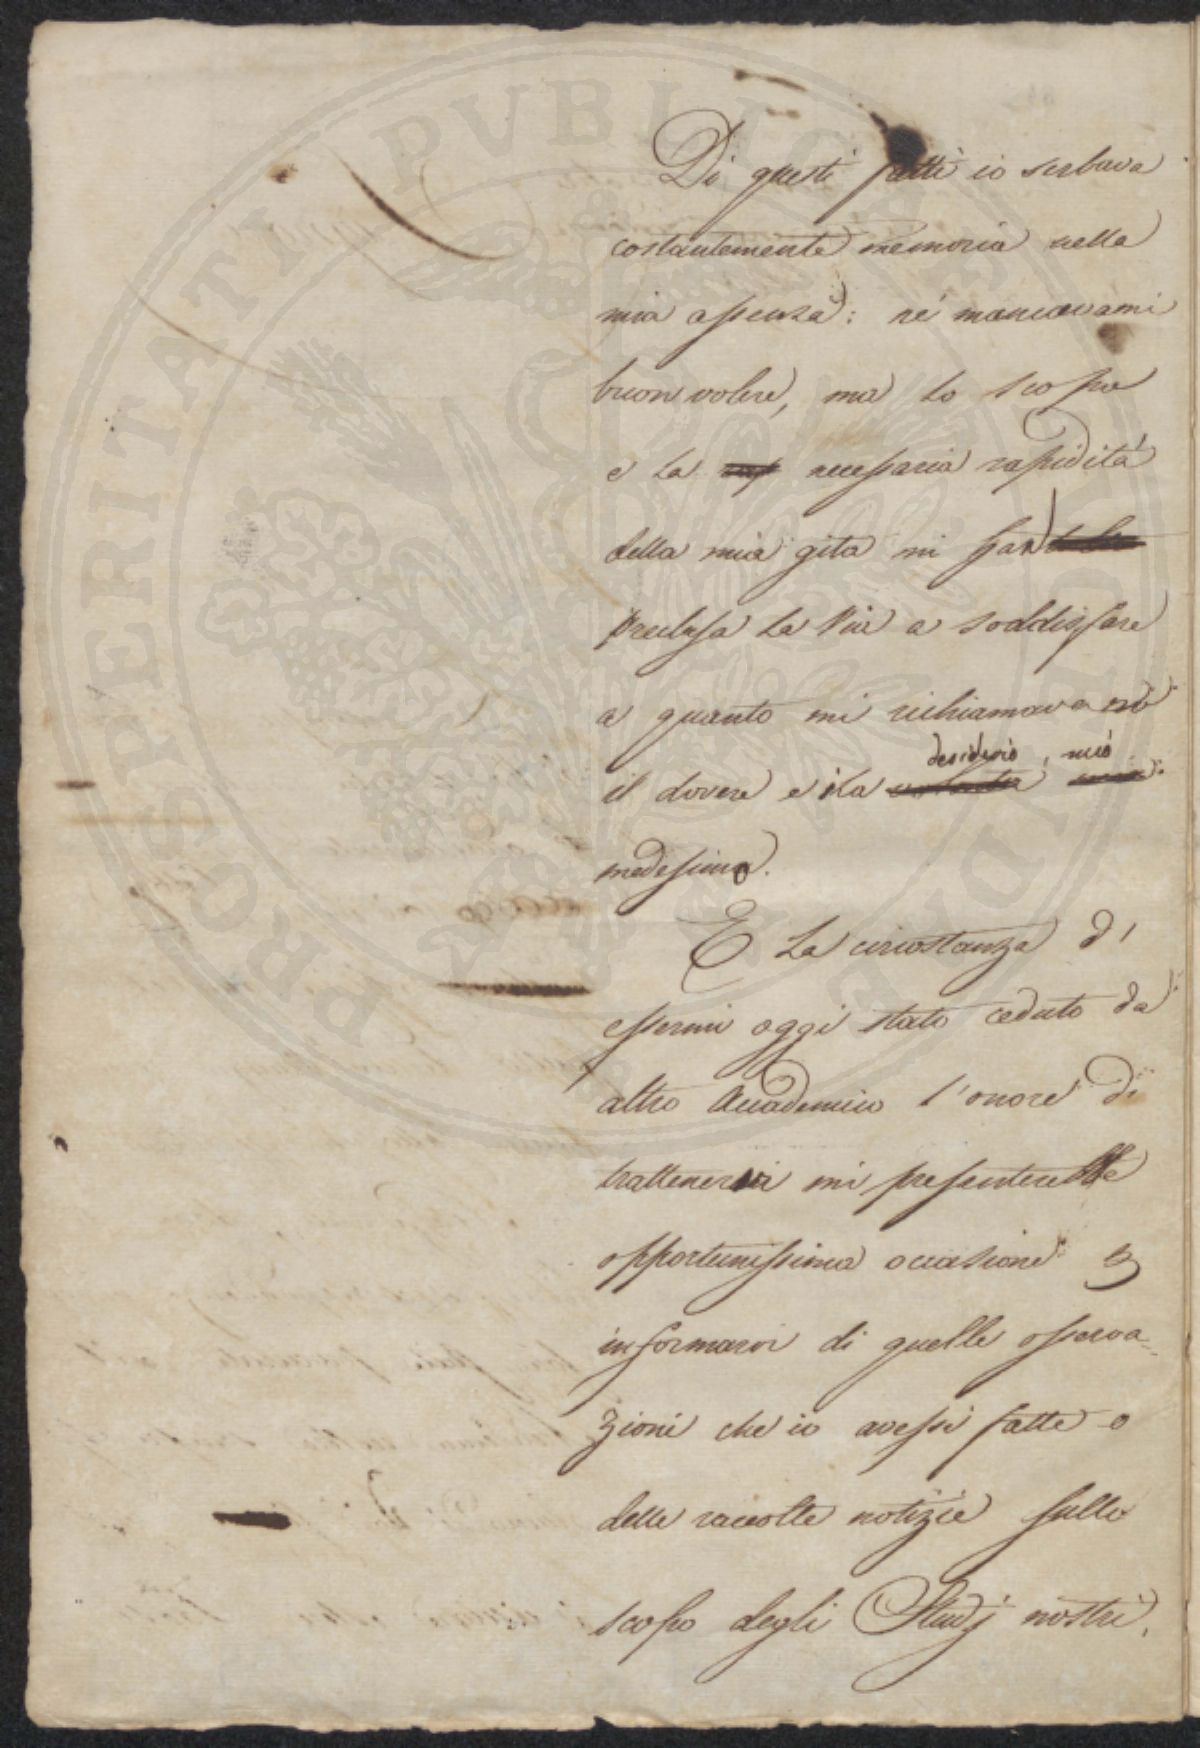 PROSPERITATI PUBLICAE AUGENDAE
Di questi fatti io serbava
costantemente memoria nella
mia assenza: né mancavami
buon volere, ma lo scopo
e la necessaria rapidità
della mia gita mi
preclusa la via a soddisfare
a quanto mi richiamava
desiderio, mio
il dovere e il
medesimo.
E la circostanza d'
essermi oggi stato ceduto da
altro Accademico l'onore di
trattenervi mi presenterebbe
opportunissima occasione
informarvi di quelle osserva-
zioni che io avessi fatte o
delle raccolte notizie sullo
scopo degli Studj nostri,